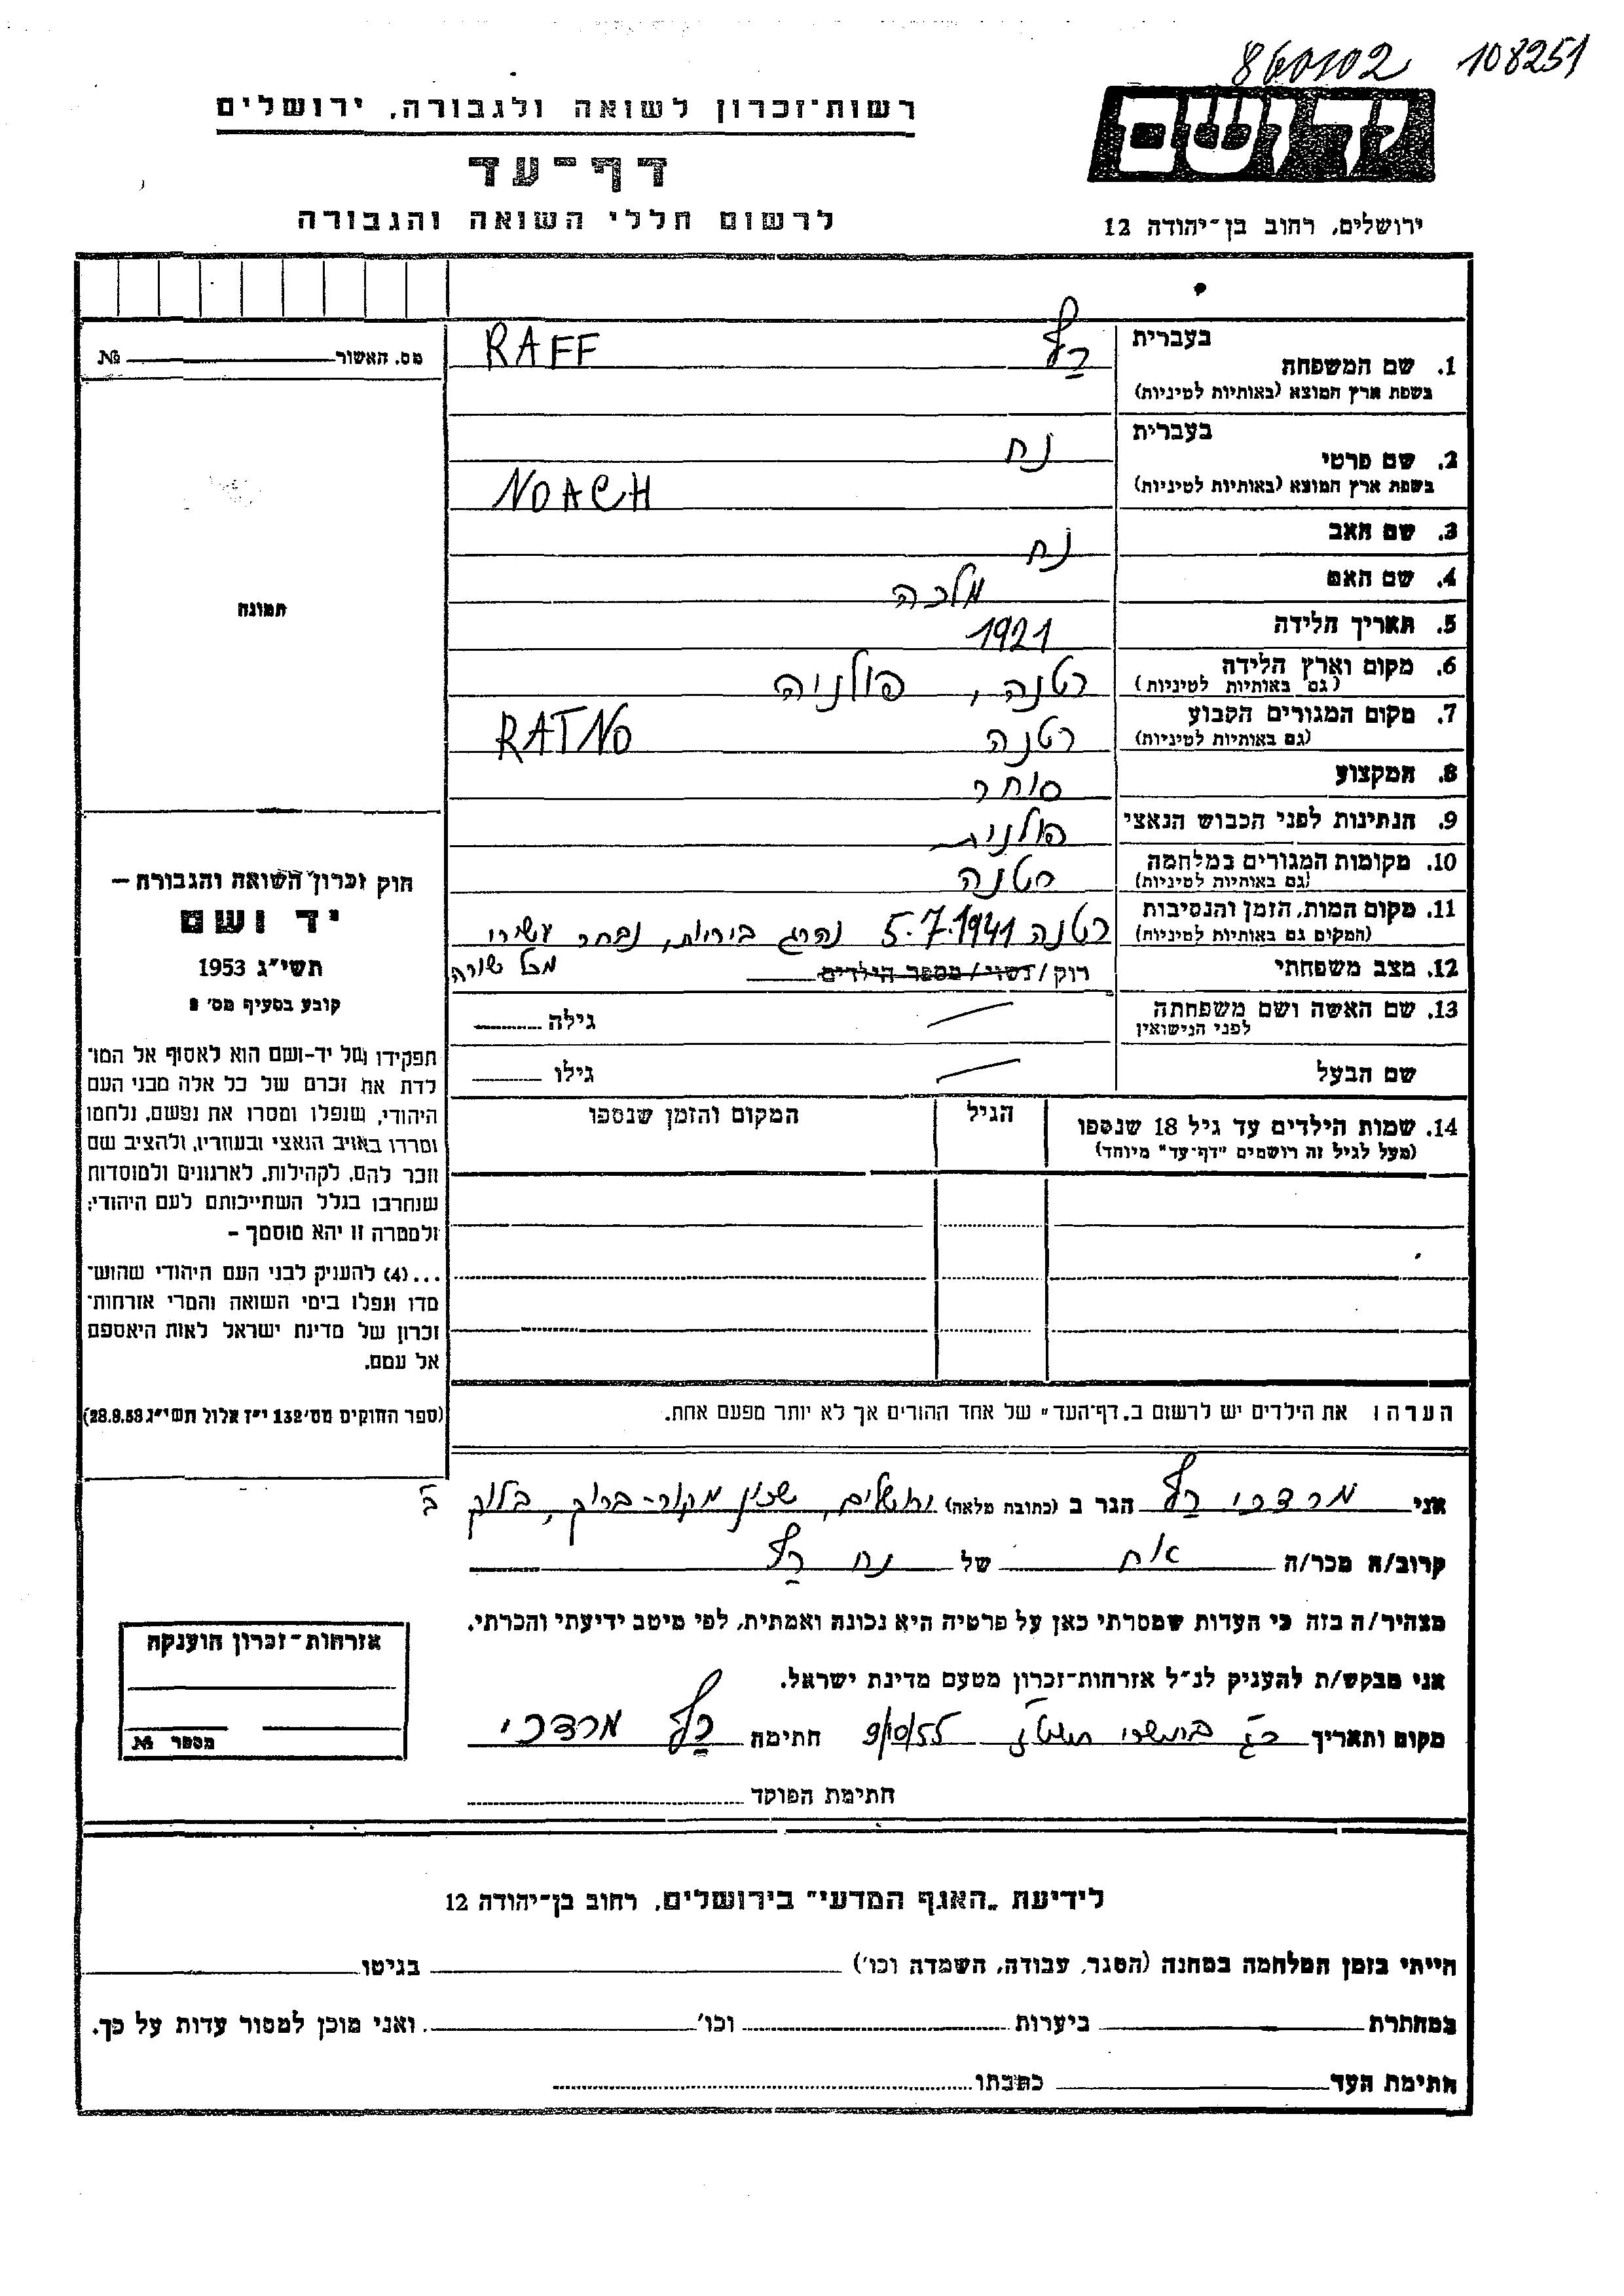 860102 108251
רשות־זכרון לשואה ולגבורה, ירושלים
יד ושם
דף־עד
לרשום חללי השואה והגבורה
ירושלים, רחוב בן־יהודה 12
מס. האשור № 
בעברית רַף RAFF
1. שם המשפחה
בשפת ארץ המוצא (באותיות לטיניות)
בעברית נח
2. שם פרטי
בשפת ארץ המוצא (באותיות לטיניות) NOACH
3. שם האב נח
4. שם האם מלכה
5. תאריך הלידה 1921
6. מקום וארץ הלידה רטנה, פולניה
(גם באותיות לטיניות)
7. מקום המגורים הקבוע רטנה RATNO
(גם באותיות לטיניות)
8. המקצוע סוחר
9. הנתינות לפני הכבוש הנאצי פולנית
10. מקומות המגורים במלחמה רטנה
(גם באותיות לטיניות)
11. מקום המות, הזמן והנסיבות רטנה 5.7.1941 נהרג ביריות, נבחר עשירי
(המקום גם באותיות לטיניות) מכל שורה
12. מצב משפחתי רוק/נשוי/מספר הילדים
13. שם האשה ושם משפחתה גילה
לפני הנישואין
שם הבעל גילו
14. שמות הילדים עד גיל 18 שנספו הגיל המקום והזמן שנספו
(מעל לגיל זה רושמים "דף־עד" מיוחד)
הערה: את הילדים יש לרשום ב„דף־העד" של אחד ההורים אך לא יותר מפעם אחת.
תמונה
חוק זכרון השואה והגבורה –
יד ושם
תשי״ג 1953
קובע בסעיף מס׳ 2
תפקידו של יד־ושם הוא לאסוף אל המו־
לדת את זכרם של כל אלה מבני העם
היהודי, שנפלו ומסרו את נפשם, נלחמו
ומרדו באויב הנאצי ובעוזריו, ולהציב שם
וזכר להם, לקהילות, לארגונים ולמוסדות
שנחרבו בגלל השתייכותם לעם היהודי;
ולמטרה זו יהא מוסמך –
...(4) להעניק לבני העם היהודי שהוש־
מדו ונפלו בימי השואה והמרי אזרחות־
זכרון של מדינת ישראל לאות היאספם
אל עמם.
(ספר החוקים מס׳ 132 י״ז אלול תשי״ג 28.8.53)
אני מרדכי רַף הגר ב (כתובת מלאה) ירושלים, שכון מקור־ברוך, בלוק ב׳
קרוב/ה מכר/ה אח של נח רַף
מצהיר/ה בזה כי העדות שמסרתי כאן על פרטיה היא נכונה ואמתית, לפי מיטב ידיעתי והכרתי.
אני מבקש/ת להעניק לנ״ל אזרחות־זכרון מטעם מדינת ישראל.
מקום ותאריך כ״ג בתשרי תשט״ז 9/10/55 חתימה רַף מרדכי
חתימת הפוקד
אזרחות־זכרון הוענקה
מספר №
לידיעת „האגף המדעי" בירושלים, רחוב בן־יהודה 12
הייתי בזמן המלחמה במחנה (הסגר, עבודה, השמדה וכו׳) בגיטו
במחתרת ביערות וכו׳ ואני מוכן למסור עדות על כך.
חתימת העד כתבתו